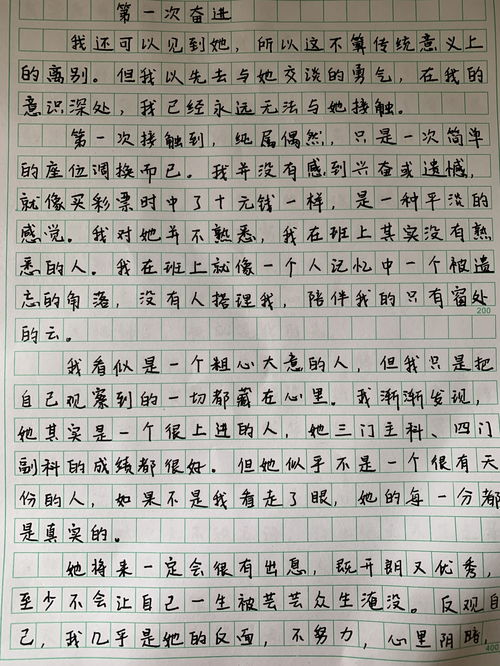 第一次奋进
我还可以见到她，所以这不算传统意义上
的离别。但我以先去与她交谈的勇气，在我的
意识深处，我已经永远无法与她接触。
第一次接触到，纯属偶然，只是一次简单
的座位调换而已。我并没有感到兴奋或遗憾，
就像买彩票时中了十元钱一样，是一种平淡的
感觉。我对她并不熟悉，我在班上其实没有熟
悉的人。我在班上就像一个人记忆中一个被遗
忘的角落，没有人搭理我，陪伴我的只有窗处
200
的云。
我看似是一个粗心大意的人，但我只是把
自己观察到的一切都藏在心里。我渐渐发现，
她其实是一个很上进的人，她三门主科、四门
副科的成绩都很好。但她似乎不是一个很有天
份的人，如果不是我看走了眼，她的每一分都
是真实的。
她将来一定会很有出息，既开朗又优秀，
至少不会让自己一生被芸芸众生淹没。反观自
己，我几乎是她的反面，不努力，心里阴暗，
400